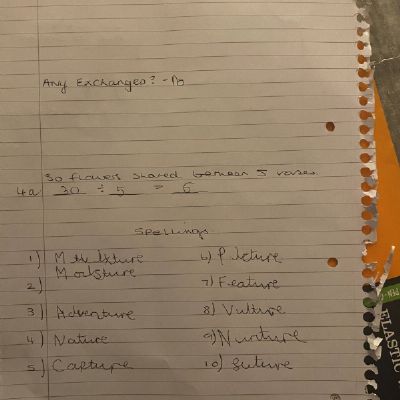 Any Exchanges? - No
30 flowers shared between 5 vases.
4a 30 ÷ 5 = 6
Spellings
1) Mixture
Moisture
2)
3) Adventure
4) Nature
5) Capture
6) Picture
7) Feature
8) Vulture
9) Nurture
10) Suture
ELASTIC